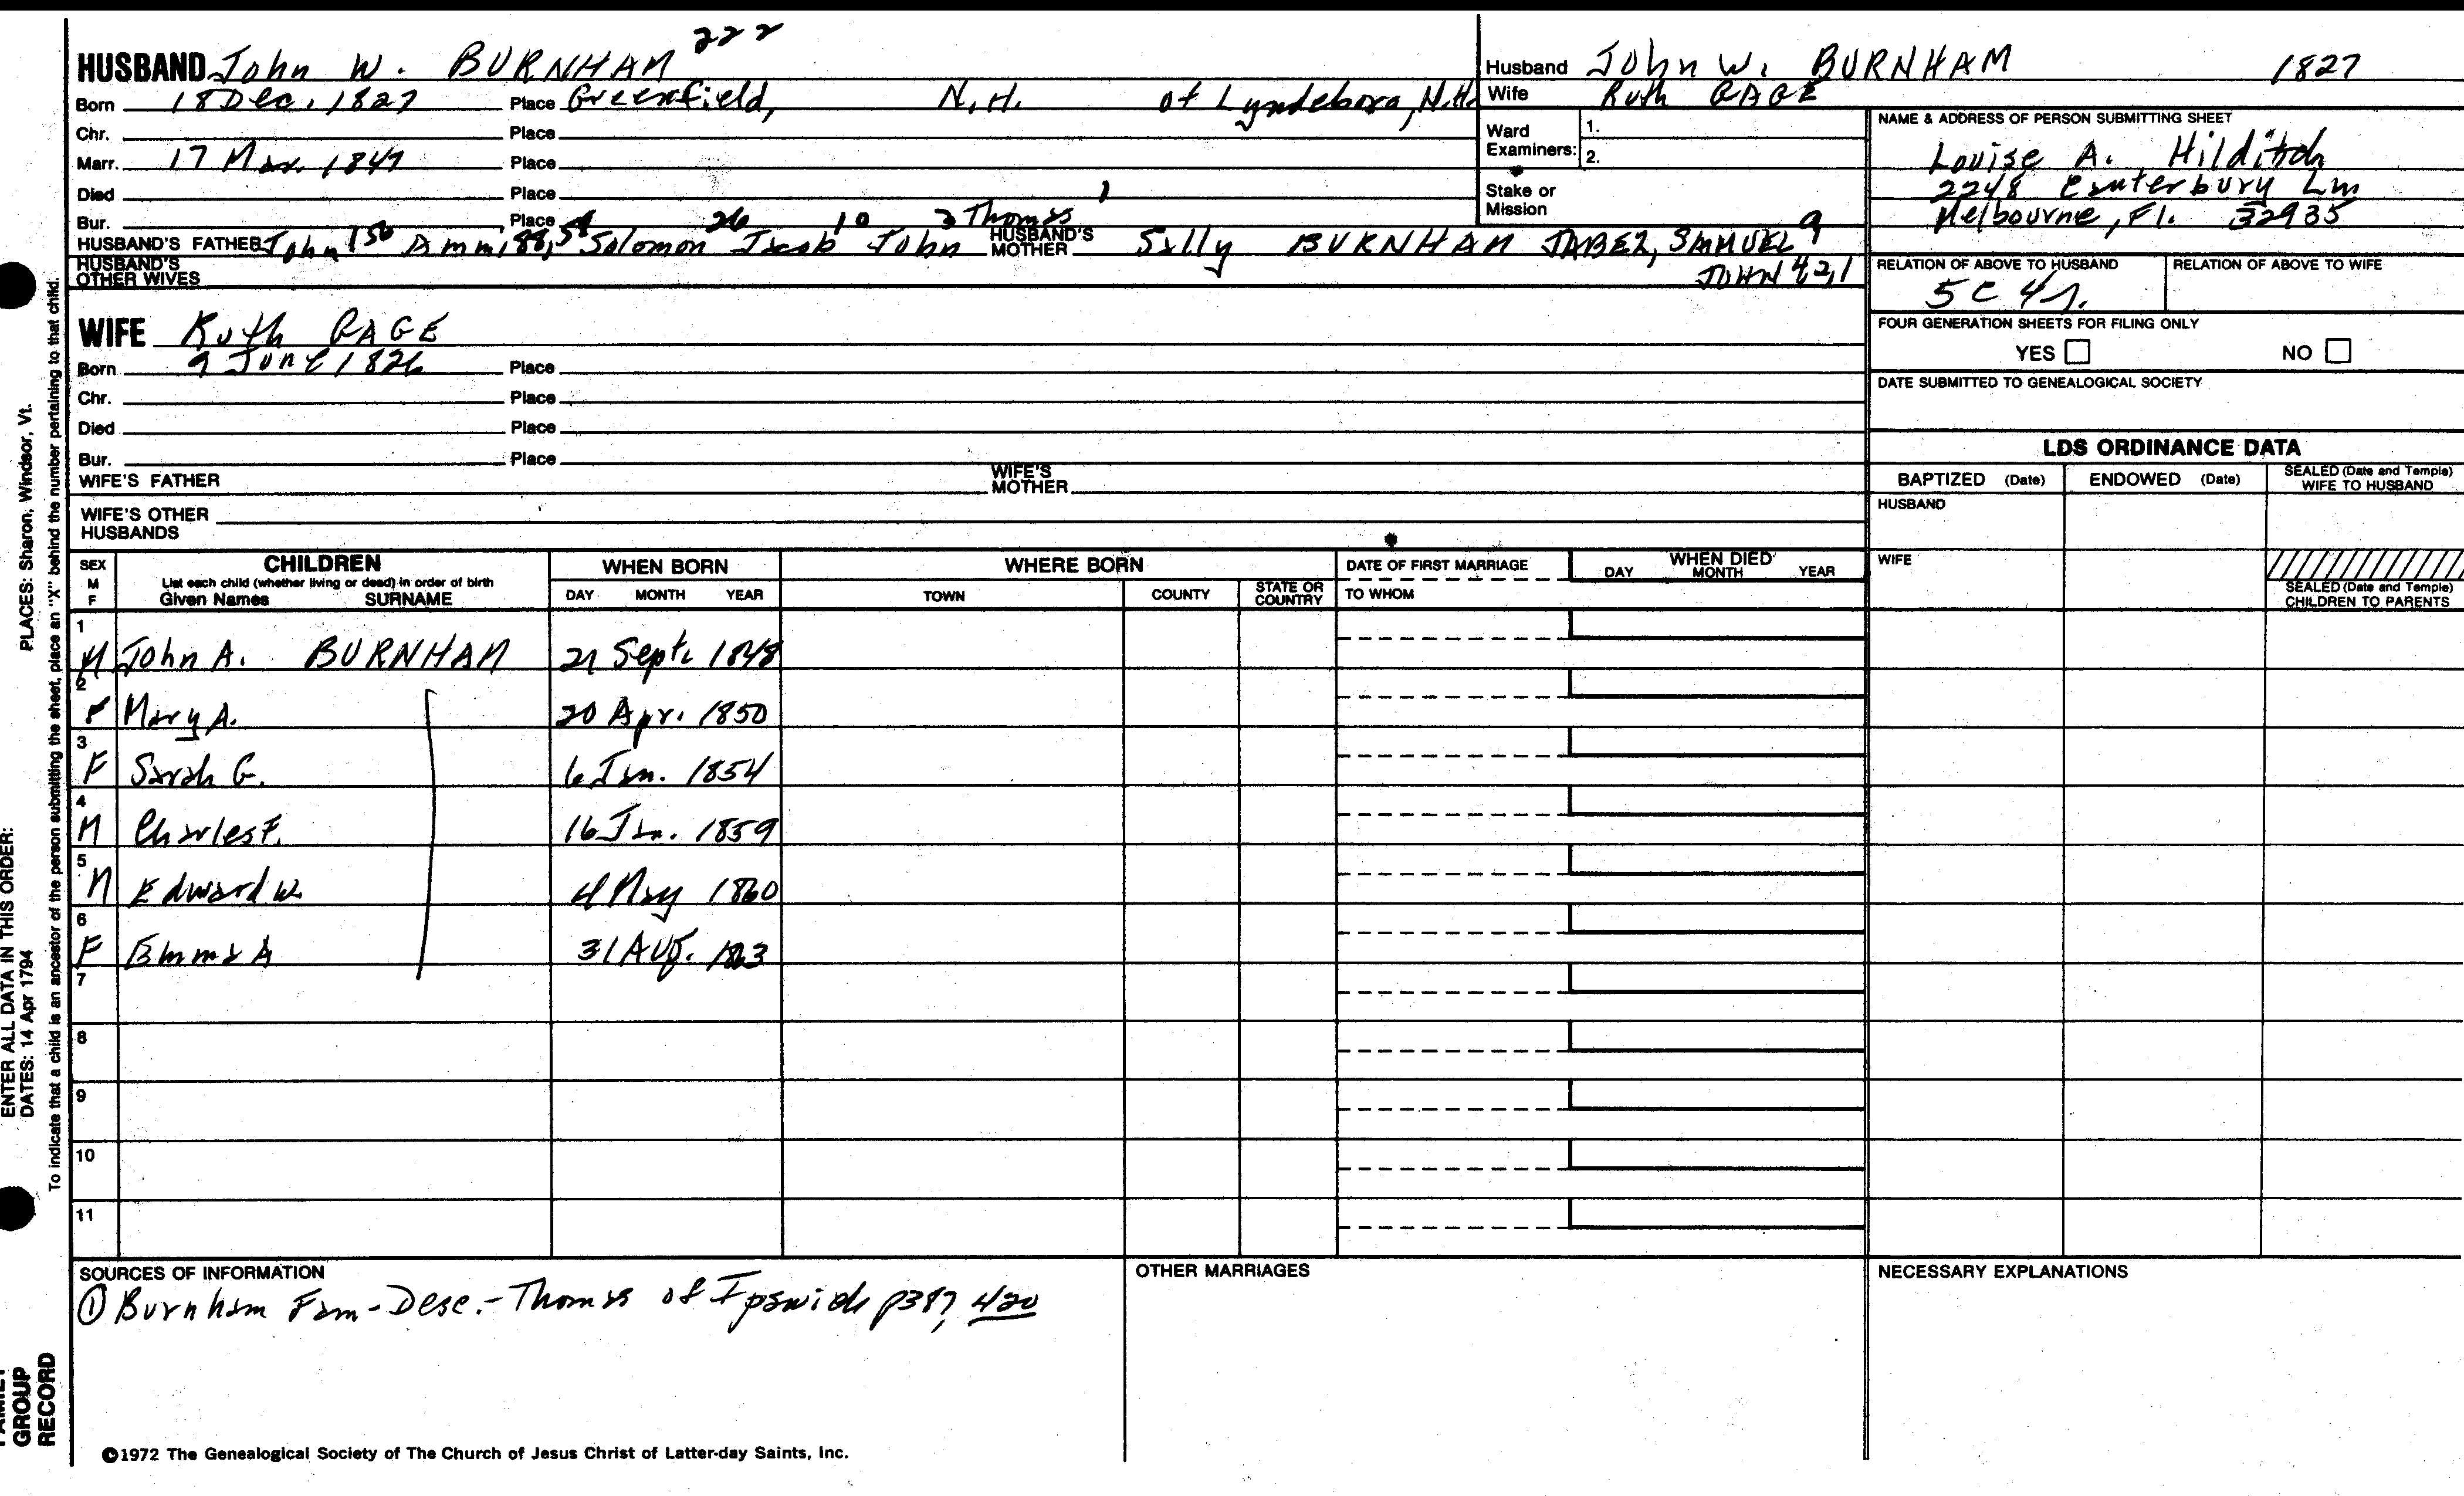 HUSBAND John W. BURNHAM 222
Born 18 Dec. 1827 Place Greenfield, N.H. of Lyndeboro, N.H.
Chr. Place
Marr. 17 Mar. 1847 Place
Died Place
Bur. Place
HUSBAND'S FATHER John 150 Ammi 88, 54 Solomon 26 Jacob 10 John 3 Thomas 1 HUSBAND'S MOTHER Sally BURNHAM JABEZ, SAMUEL 9
HUSBAND'S OTHER WIVES JOHN 4 2,1
WIFE Ruth GAGE
Born 9 June 1826 Place
Chr. Place
Died Place
Bur. Place
WIFE'S FATHER WIFE'S MOTHER
WIFE'S OTHER HUSBANDS
Husband John W. BURNHAM 1827
Wife Ruth GAGE
Ward Examiners: 1.
2.
Stake or Mission
NAME & ADDRESS OF PERSON SUBMITTING SHEET
Louise A. Hilditch
2248 Canterbury Ln
Melbourne, Fl. 32935
RELATION OF ABOVE TO HUSBAND RELATION OF ABOVE TO WIFE
5C 4r.
FOUR GENERATION SHEETS FOR FILING ONLY
YES NO
DATE SUBMITTED TO GENEALOGICAL SOCIETY
LDS ORDINANCE DATA
BAPTIZED (Date) ENDOWED (Date) SEALED (Date and Temple) WIFE TO HUSBAND
HUSBAND
WIFE
SEALED (Date and Temple) CHILDREN TO PARENTS
SEX M F CHILDREN WHEN BORN WHERE BORN DATE OF FIRST MARRIAGE WHEN DIED
List each child (whether living or dead) in order of birth
Given Names SURNAME DAY MONTH YEAR TOWN COUNTY STATE OR COUNTRY TO WHOM DAY MONTH YEAR
1 M John A. BURNHAM 21 Sept. 1848
2 F Mary A. 20 Apr. 1850
3 F Sarah G. 6 Jan. 1854
4 M Charles F. 16 Jan. 1859
5 M Edward W. 4 May 1860
6 F Emma A 31 Aug. 1863
7
8
9
10
11
SOURCES OF INFORMATION
① Burnham Fam - Desc. - Thomas of Ipswich p387, 420
OTHER MARRIAGES
NECESSARY EXPLANATIONS
©1972 The Genealogical Society of The Church of Jesus Christ of Latter-day Saints, Inc.
PLACES: Sharon, Windsor, Vt.
To indicate that a child is an ancestor of the person submitting the sheet, place an "X" behind the number pertaining to that child.
ENTER ALL DATA IN THIS ORDER:
DATES: 14 Apr 1794
FAMILY
GROUP
RECORD